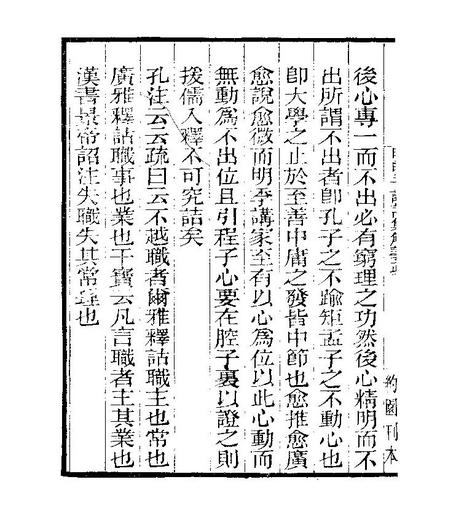 後心專一而不出必有窮理之功然後心精明而不
出所謂不出者卽孔子之不踰矩孟子之不動心也
卽大學之止於至善中庸之發皆中節也愈推愈廣
愈說愈微而明季講家至有以心為位以此心動而
無動為不出位且引程子心要在腔子裏以證之則
援儒入釋不可究詰矣
孔注云云疏曰云不越職者爾雅釋詁職主也常也
廣雅釋詁職事也業也干寶云凡言職者主其業也
漢書景帝詔注失職失其常業也
約園刊本